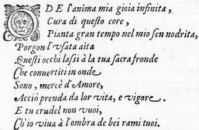 DE l'anima mia gioia infinita,
Cura di questo core,
Pianta gran tempo nel mio sen nodrita,
Porgon l'usata aita
Questi occhi lassi à la tua sacra fronde
Che convertiti in onde
Sono, mercè d'Amore,
Acciò prenda da lor vita, e vigore.
E tu crudel non vuoi,
Ch'io viva à l'ombra de bei rami tuoi.